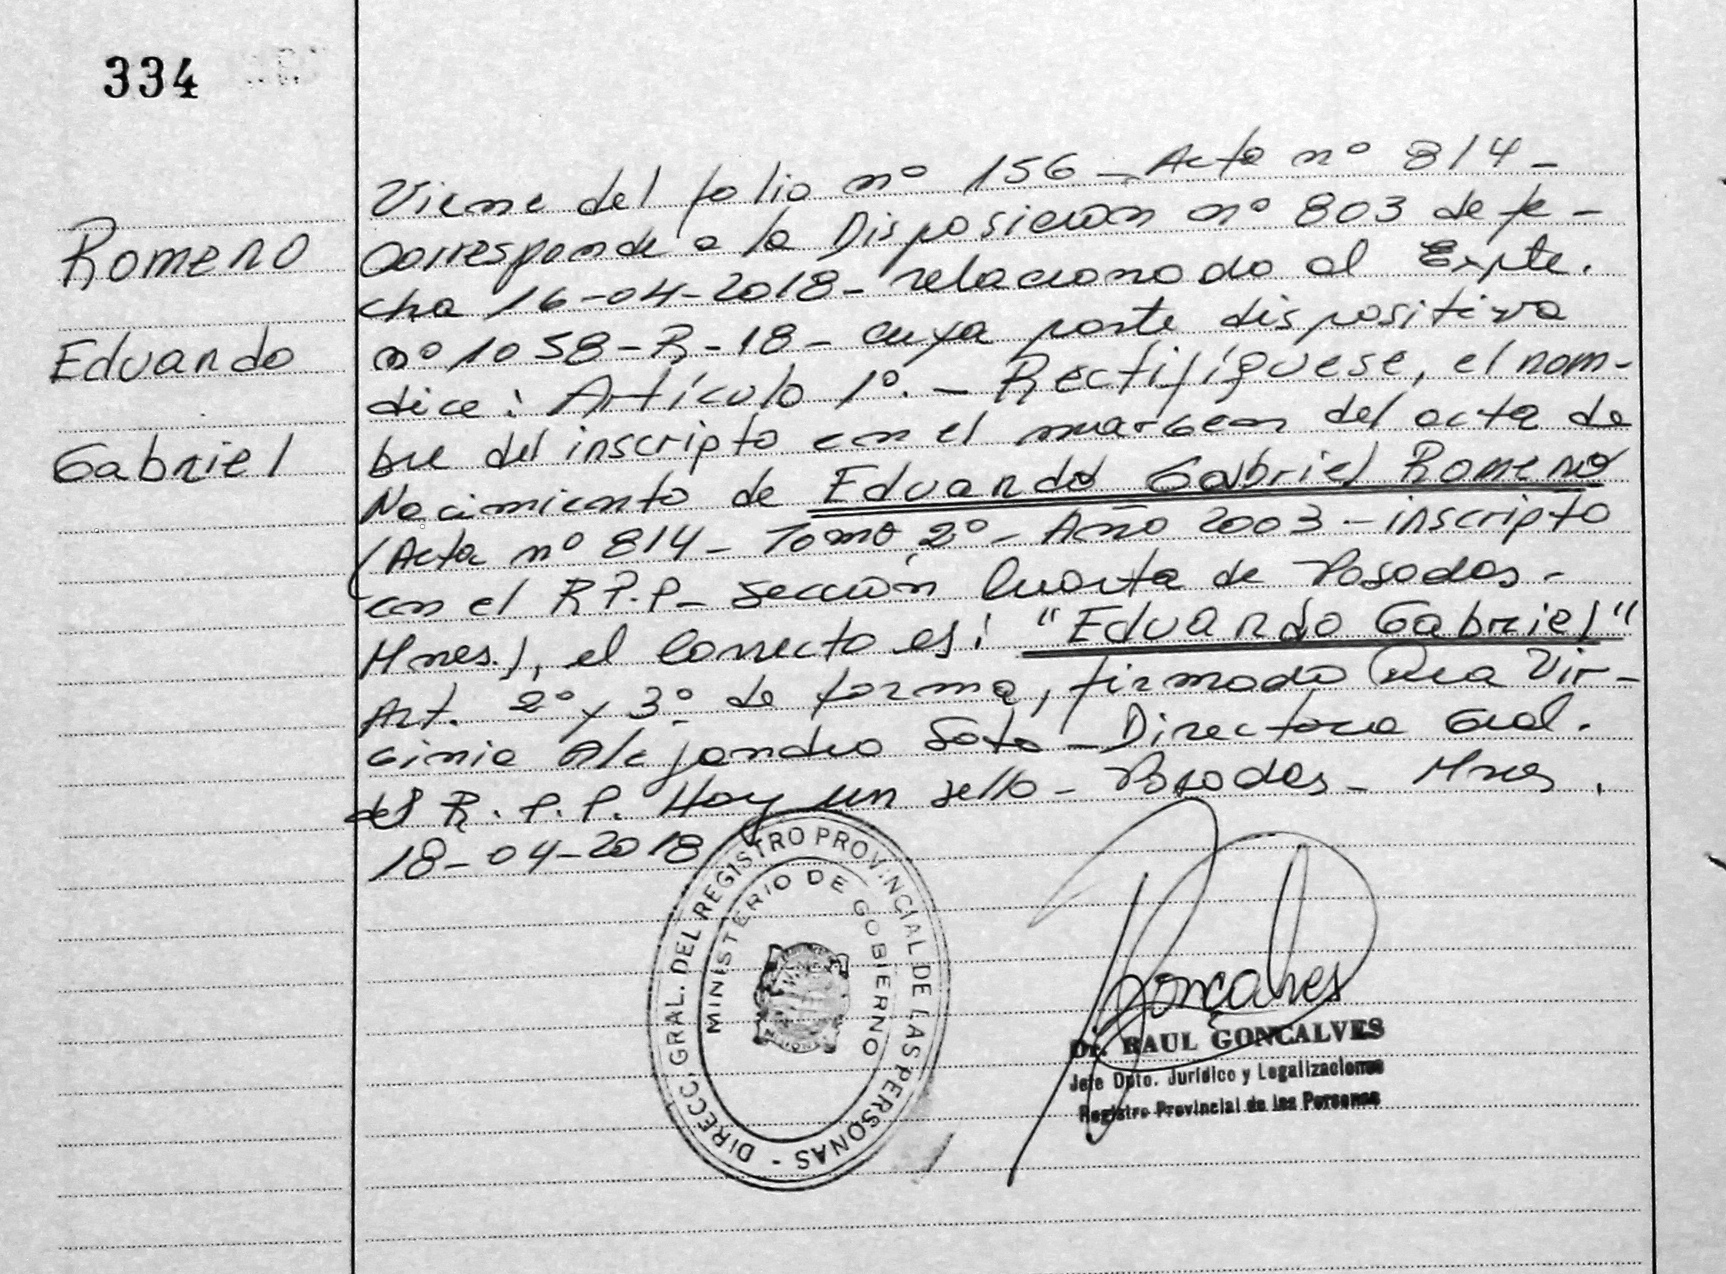 334
Romero
Eduardo
Gabriel
Viene del folio nº 156 - Acta nº 814 -
Corresponde a la Disposición nº 803 de fe -
cha 16-04-2018 - relacionado al Expte.
nº 1058 - R - 18 - cuya parte dispositiva
dice: Artículo 1º. - Rectifíquese, el nom-
bre del inscripto en el margen del acta de
Nacimiento de Eduardo Gabriel Romero
(Acta nº 814 - Tomo 2º - Año 2003 - inscripto
en el R.P.P - sección Cuarta de Posadas -
Mnes.), el correcto es: "Eduardo Gabriel"
Art. 2º y 3º de forma, firmado Dra Vir-
ginia Alejandra Soto - Directora Gral.
del R. P. P. Hay un sello - Posadas - Mnes.
18-04-2018
DIRECC. GRAL. DEL REGISTRO PROVINCIAL DE LAS PERSONAS -
MINISTERIO DE GOBIERNO
MISIONES
Goncalves
Dr. RAUL GONCALVES
Jefe Dpto. Jurídico y Legalizaciones
Registro Provincial de las Personas